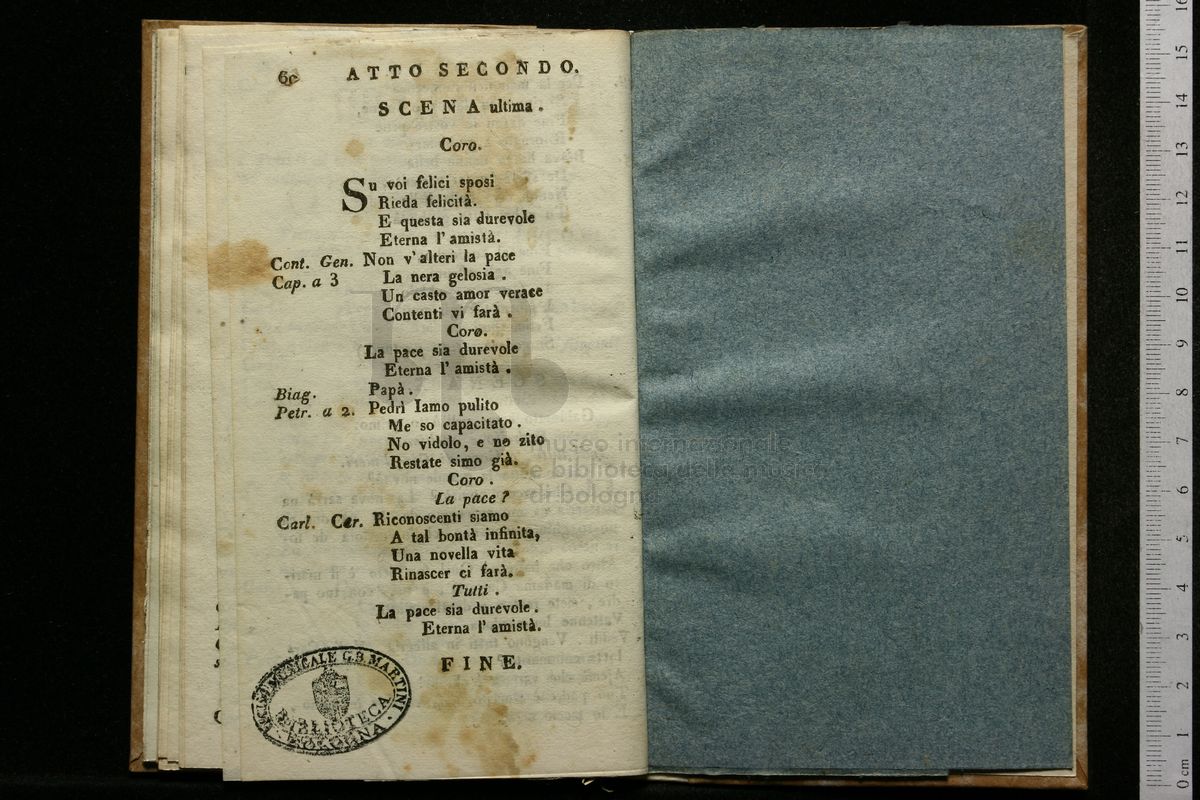 60 ATTO SECONDO.
SCENA ultima.
Coro.
Su voi felici sposi
Rieda felicità.
E questa sia durevole
Eterna l' amistà.
Cont. Gen. Non v' alteri la pace
Cap. a 3 La nera gelosia.
Un casto amor verace
Contenti vi farà.
Coro.
La pace sia durevole
Eterna l' amistà.
Biag. Papà.
Petr. a 2. Pedrì Iamo pulito
Me so capacitato.
No vidolo, e no zito
Restate simo già.
Coro.
La pace?
Carl. Cer. Riconoscenti siamo
A tal bontà infinita,
Una novella vita
Rinascer ci farà.
Tutti.
La pace sia durevole.
Eterna l' amistà.
FINE.
MUSICALE G.B. MARTINI
BIBLIOTECA
BOLOGNA
museo internazionale
e biblioteca della musica
di bologna
0 cm 1 2 3 4 5 6 7 8 9 10 11 12 13 14 15 16